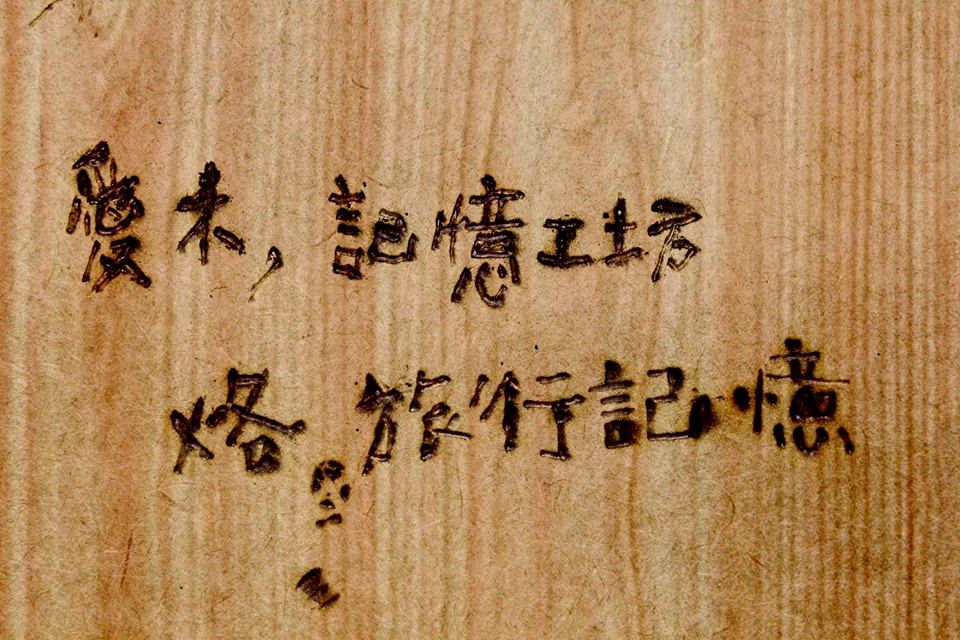 愛木，記憶工坊
烙 旅行記憶